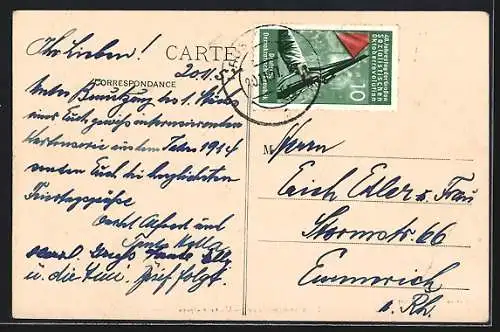 Ihr Lieben!
CARTE
20.11.5
CORRESPONDANCE
Unter Benützung des 1. Stücks
einer Euch gewiss interessierenden
Kartenserie aus dem Jahre 1914
senden Euch die herzlichsten
Feiertagsgrüße
Onkel Alfred und
Tante Kella
u. die Eine! Brief folgt.
40. Jahrestag der Großen
Sozialistischen
Oktoberrevolution
Deutsche
Demokratische Republik
10
M
Herrn
Erich Edler u. Frau
Sturmstr. 66
Emmerich
a. Rh.